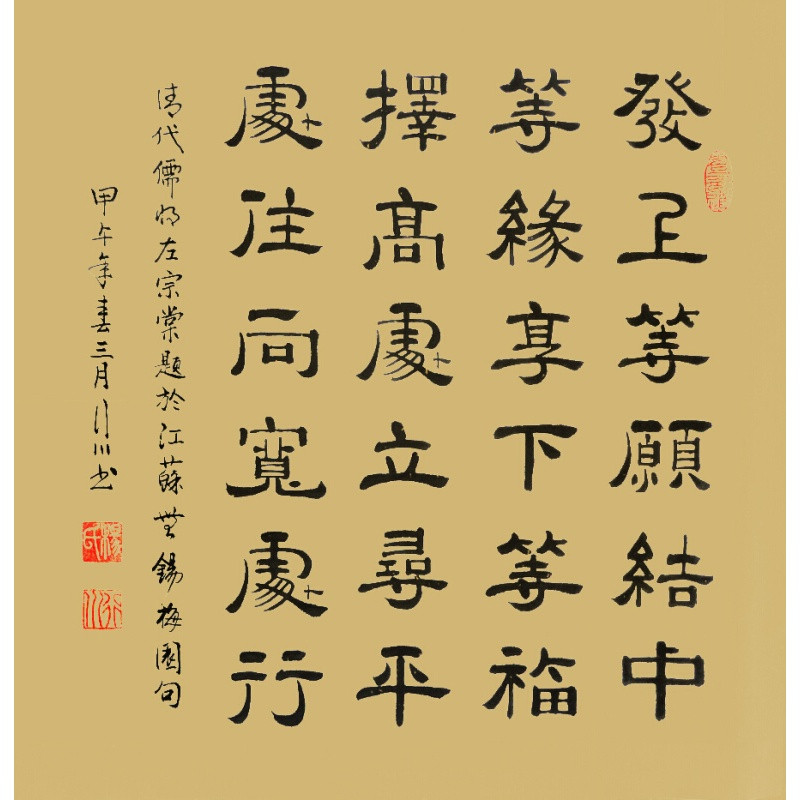 發上等願結中
等緣享下等福
擇高處立尋平
處住向寬處行
清代儒將左宗棠題於江蘇無錫梅園句
甲午年春三月行川書
楊氏
行川